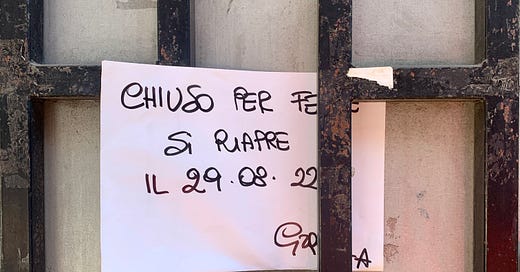 CHIUSO PER
SI RIAPRE
IL 29.08.22